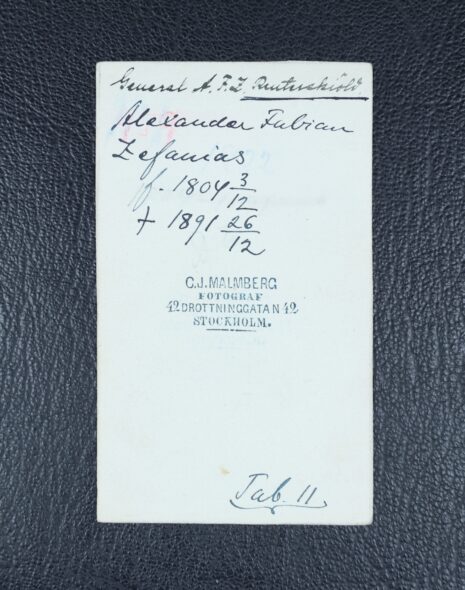 General A. F. Z. Reuterskiöld
Alexander Fabian
Zefanias
f. 1804 3/12
† 1891 26/12
C.J. MALMBERG
FOTOGRAF
42 DROTTNINGGATAN 42
STOCKHOLM.
Tab. 11